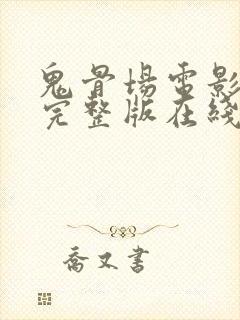 鬼骨場電影
完整版在綫
喬又書